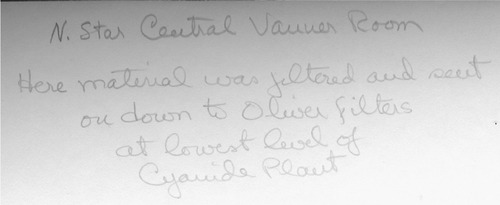 N. Star Central Vanner Room
Here material was filtered and sent
on down to Oliver filters
at lowest level of
Cyanide Plant